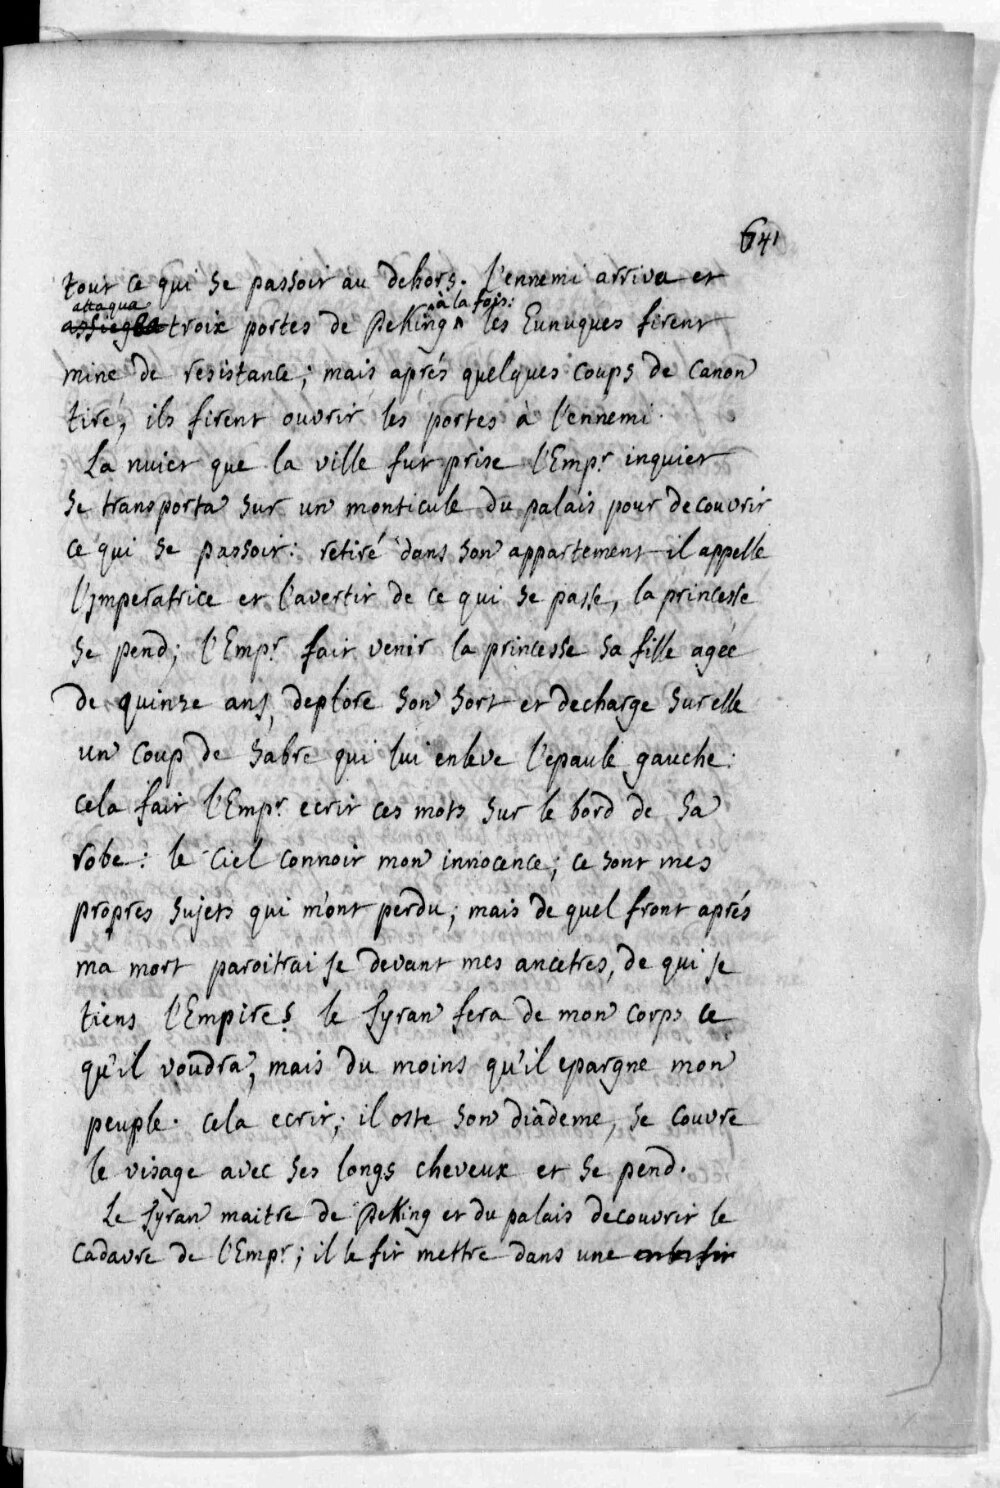 641
tout ce qui se passoit au dehors. l'ennemi arriva et
attaqua à la fois:
assiegea troix portes de PeKing les Eunuques firent
mine de resistance; mais aprés quelques coups de canon
tiré, ils firent ouvrir les portes à l'ennemi.
La nuict que la ville fut prise l'Empr. inquiet
se transporta sur un monticule du palais pour decouvrir
ce qui se passoit: retiré dans son appartement il appelle
l'Imperatrice et l'avertit de ce qui se passe, la princesse
se pend; l'Empr. fait venir la princesse sa fille agée
de quinze ans, deplore son sort et decharge sur elle
un coup de sabre qui lui enleve l'epaule gauche:
cela fait l'Empr. ecrit ces mots sur le bord de sa
robe: le Ciel connoit mon innocence; ce sont mes
propres sujets qui m'ont perdu; mais de quel front aprés
ma mort paroitrai je devant mes ancetres, de qui je
tiens l'Empire? le Tyran fera de mon corps ce
qu'il voudra, mais du moins qu'il epargne mon
peuple. cela ecrit; il oste son diademe, se couvre
le visage avec ses longs cheveux et se pend.
Le Tyran maitre de PeKing et du palais decouvrit le
cadavre de l'Empr.; il le fit mettre dans une